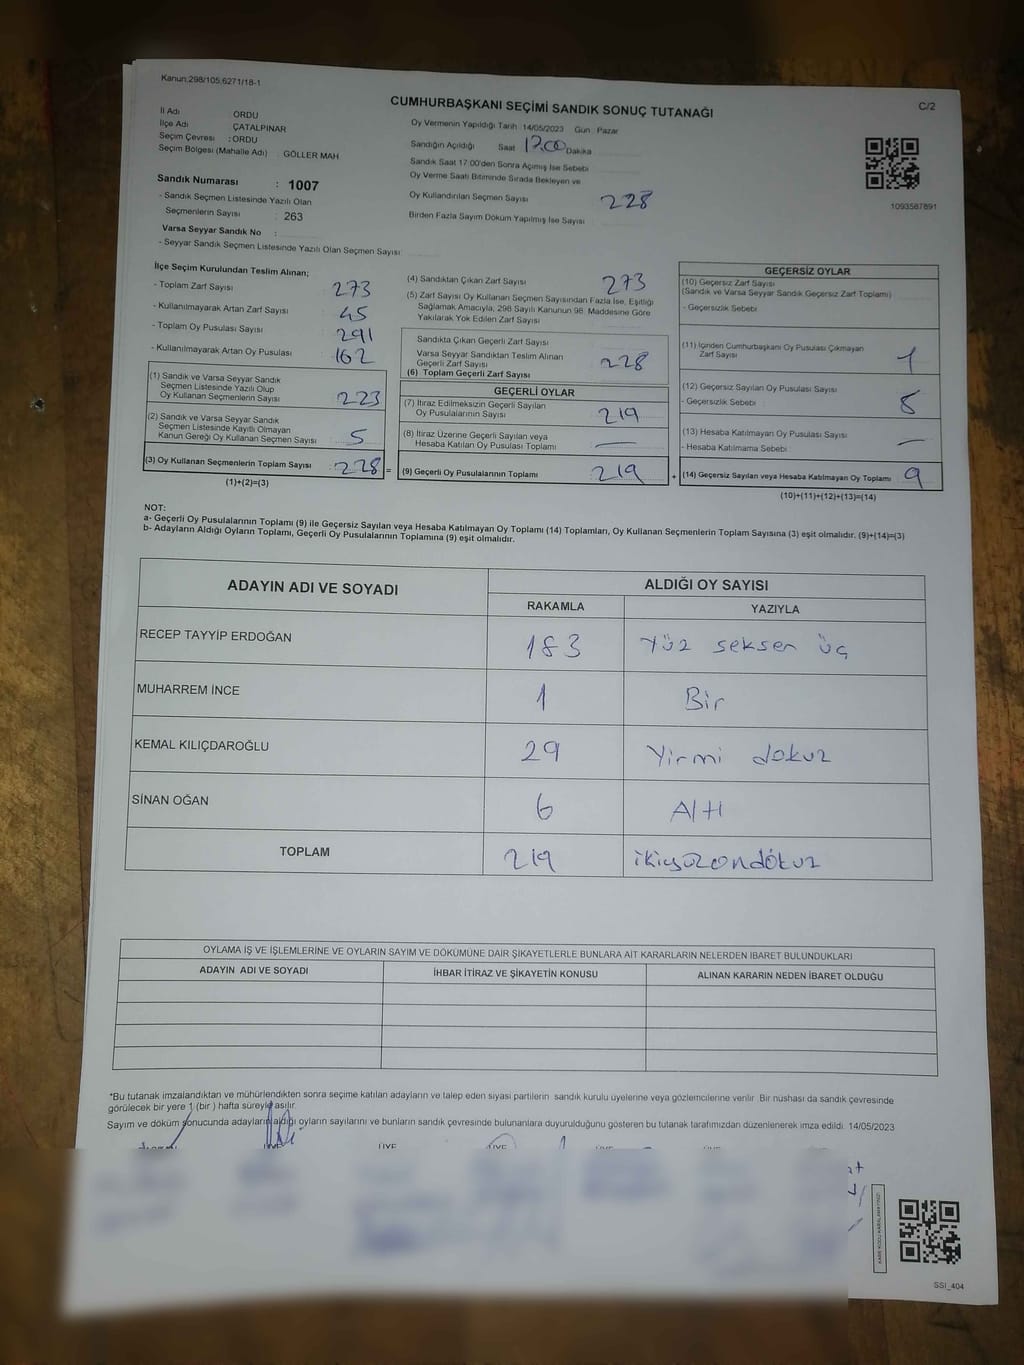 Kanun:298/105,6271/18-1
C/2
CUMHURBAŞKANI SEÇİMİ SANDIK SONUÇ TUTANAĞI
İl Adı : ORDU
İlçe Adı : ÇATALPINAR
Seçim Çevresi : ORDU
Seçim Bölgesi (Mahalle Adı) : GÖLLER MAH
Sandık Numarası : 1007
- Sandık Seçmen Listesinde Yazılı Olan
Seçmenlerin Sayısı : 263
Varsa Seyyar Sandık No :
- Seyyar Sandık Seçmen Listesinde Yazılı Olan Seçmen Sayısı:
Oy Vermenin Yapıldığı Tarih : 14/05/2023 Gün : Pazar
Sandığın Açıldığı Saat 17.00 Dakika
Sandık Saat 17:00'den Sonra Açılmış İse Sebebi
Oy Verme Saati Bitiminde Sırada Bekleyen ve
Oy Kullandırılan Seçmen Sayısı 228
Birden Fazla Sayım Döküm Yapılmış İse Sayısı
1093587891
İlçe Seçim Kurulundan Teslim Alınan;
- Toplam Zarf Sayısı : 273
- Kullanılmayarak Artan Zarf Sayısı : 45
- Toplam Oy Pusulası Sayısı : 291
- Kullanılmayarak Artan Oy Pusulası : 162
(1) Sandık ve Varsa Seyyar Sandık
Seçmen Listesinde Yazılı Olup
Oy Kullanan Seçmenlerin Sayısı : 223
(2) Sandık ve Varsa Seyyar Sandık
Seçmen Listesinde Kayıtlı Olmayan
Kanun Gereği Oy Kullanan Seçmen Sayısı : 5
(3) Oy Kullanan Seçmenlerin Toplam Sayısı : 228 =
(1)+(2)=(3)
(4) Sandıktan Çıkan Zarf Sayısı : 273
(5) Zarf Sayısı Oy Kullanan Seçmen Sayısından Fazla İse, Eşitliği
Sağlamak Amacıyla, 298 Sayılı Kanunun 98. Maddesine Göre
Yakılarak Yok Edilen Zarf Sayısı
Sandıkta Çıkan Geçerli Zarf Sayısı
Varsa Seyyar Sandıktan Teslim Alınan
Geçerli Zarf Sayısı : 228
(6) Toplam Geçerli Zarf Sayısı
GEÇERLİ OYLAR
(7) İtiraz Edilmeksizin Geçerli Sayılan
Oy Pusulalarının Sayısı : 219
(8) İtiraz Üzerine Geçerli Sayılan veya
Hesaba Katılan Oy Pusulası Toplamı : —
(9) Geçerli Oy Pusulalarının Toplamı : 219 +
GEÇERSİZ OYLAR
(10) Geçersiz Zarf Sayısı
(Sandık ve Varsa Seyyar Sandık Geçersiz Zarf Toplamı)
- Geçersizlik Sebebi
(11) İçinden Cumhurbaşkanı Oy Pusulası Çıkmayan
Zarf Sayısı 1
(12) Geçersiz Sayılan Oy Pusulası Sayısı
- Geçersizlik Sebebi : 8
(13) Hesaba Katılmayan Oy Pusulası Sayısı : —
- Hesaba Katılmama Sebebi
(14) Geçersiz Sayılan veya Hesaba Katılmayan Oy Toplamı : 9
(10)+(11)+(12)+(13)=(14)
NOT:
a- Geçerli Oy Pusulalarının Toplamı (9) ile Geçersiz Sayılan veya Hesaba Katılmayan Oy Toplamı (14) Toplamları, Oy Kullanan Seçmenlerin Toplam Sayısına (3) eşit olmalıdır. (9)+(14)=(3)
b- Adayların Aldığı Oyların Toplamı, Geçerli Oy Pusulalarının Toplamına (9) eşit olmalıdır.
ADAYIN ADI VE SOYADI
ALDIĞI OY SAYISI
RAKAMLA YAZIYLA
RECEP TAYYİP ERDOĞAN 183 Yüz seksen üç
MUHARREM İNCE 1 Bir
KEMAL KILIÇDAROĞLU 29 Yirmi dokuz
SİNAN OĞAN 6 Altı
TOPLAM 219 ikiyüzondokuz
OYLAMA İŞ VE İŞLEMLERİNE VE OYLARIN SAYIM VE DÖKÜMÜNE DAİR ŞİKAYETLERLE BUNLARA AİT KARARLARIN NELERDEN İBARET BULUNDUKLARI
ADAYIN ADI VE SOYADI İHBAR İTİRAZ VE ŞİKAYETİN KONUSU ALINAN KARARIN NEDEN İBARET OLDUĞU
*Bu tutanak imzalandıktan ve mühürlendikten sonra seçime katılan adayların ve talep eden siyasi partilerin sandık kurulu üyelerine veya gözlemcilerine verilir. Bir nüshası da sandık çevresinde
görülecek bir yere 1 (bir ) hafta süreyle asılır.
Sayım ve döküm sonucunda adayların aldığı oyların sayılarını ve bunların sandık çevresinde bulunanlara duyurulduğunu gösteren bu tutanak tarafımızdan düzenlenerek imza edildi. 14/05/2023
ÜYE ÜYE ÜYE ÜYE
SSI_404